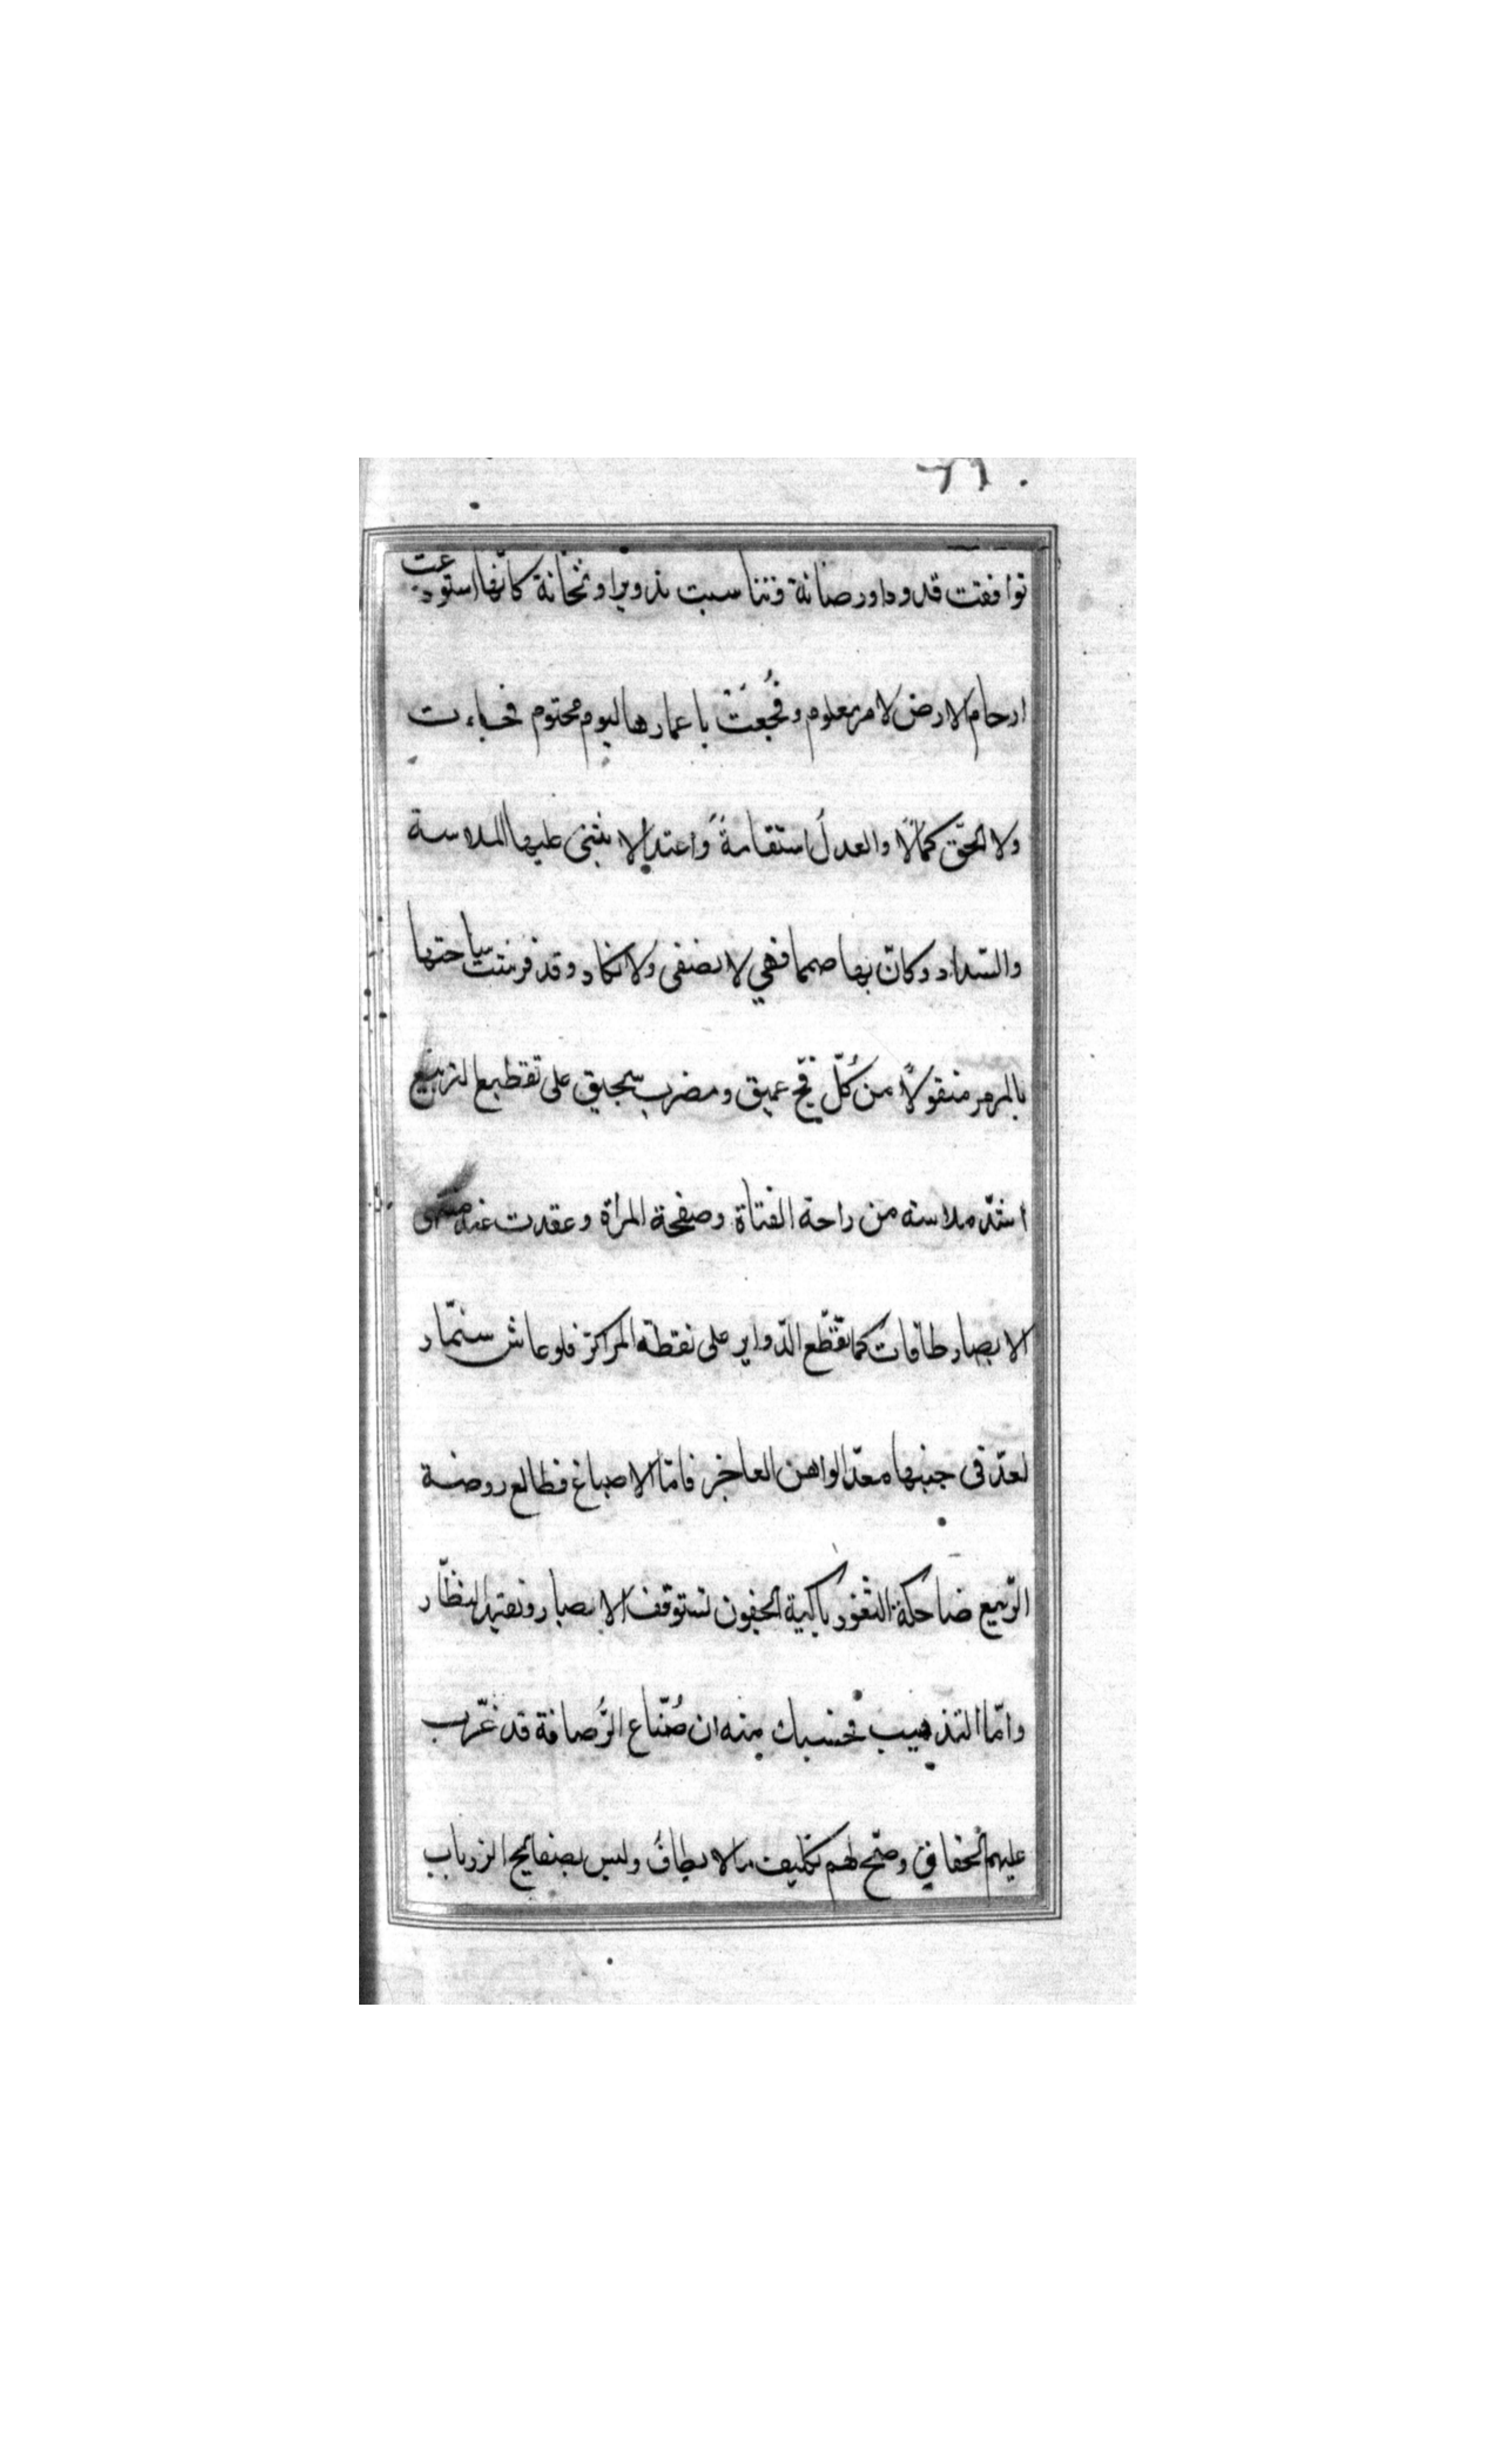 توافقت قدودا ورصانة وتناسبت تدويرا وثخانة كانّها استودعت
ارحام الارض لامر معلوم وفُجعَتْ باعمارها ليوم محتوم فجاءت
ولا الحقّ كمالًا والعدلُ استقامةً واعتدالا يثنى عليها الملاسة
والسّداد وكانّ بها صمما فهي لا تصغى ولا تكاد وقد فرشت ساحتها
بالمرمر منقولًا من كُلّ فجّ عميق ومضرب سحيق على تقطيع التربيع
اشدّ ملاسة من راحة الفتاة وصفحة المرأة وعقدت عند
الابصار طاقات كما تقطّع الدّواير على نقطة المركز فلو عاش سنمّار
لعدّ فى جنبها معدّ الواهن العاجز فامّا الاصباغ فطالع روضة
الرّبيع ضاحكة الثغور باكية الجفون تستوقف الابصار وتقيّد النظّار
وامّا التذهيب فحسبك منه ان صُنّاع الرُّصافة قد غرّب
عليهم الحقاق وصحّ لهم تكليف ما لا يطاقُ وليس بصفايح الزرياب